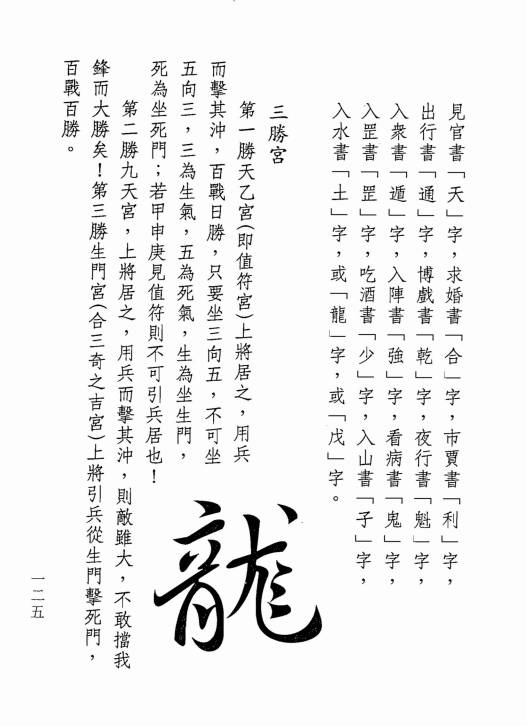 見官書「天」字，求婚書「合」字，市賈書「利」字，
出行書「通」字，博戲書「乾」字，夜行書「魁」字，
入衆書「遁」字，入陣書「強」字，看病書「鬼」字，
入罡書「罡」字，吃酒書「少」字，入山書「子」字，
入水書「土」字，或「龍」字，或「戊」字。
三勝宮
第一勝天乙宮(即值符宮)上將居之，用兵
而擊其沖，百戰日勝，只要坐三向五，不可坐
五向三，三為生氣，五為死氣，生為坐生門，
死為坐死門；若甲申庚見值符則不可引兵居也！
第二勝九天宮，上將居之，用兵而擊其沖，則敵雖大，不敢擋我
鋒而大勝矣！第三勝生門宮(合三奇之吉宮)上將引兵從生門擊死門，
百戰百勝。
龍
一二五